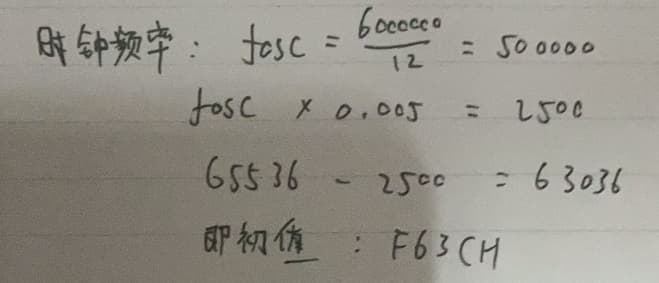 时钟频率: fosc = 6000000/12 = 500000
fosc × 0.005 = 2500
65536 - 2500 = 63036
即初值 : F63CH